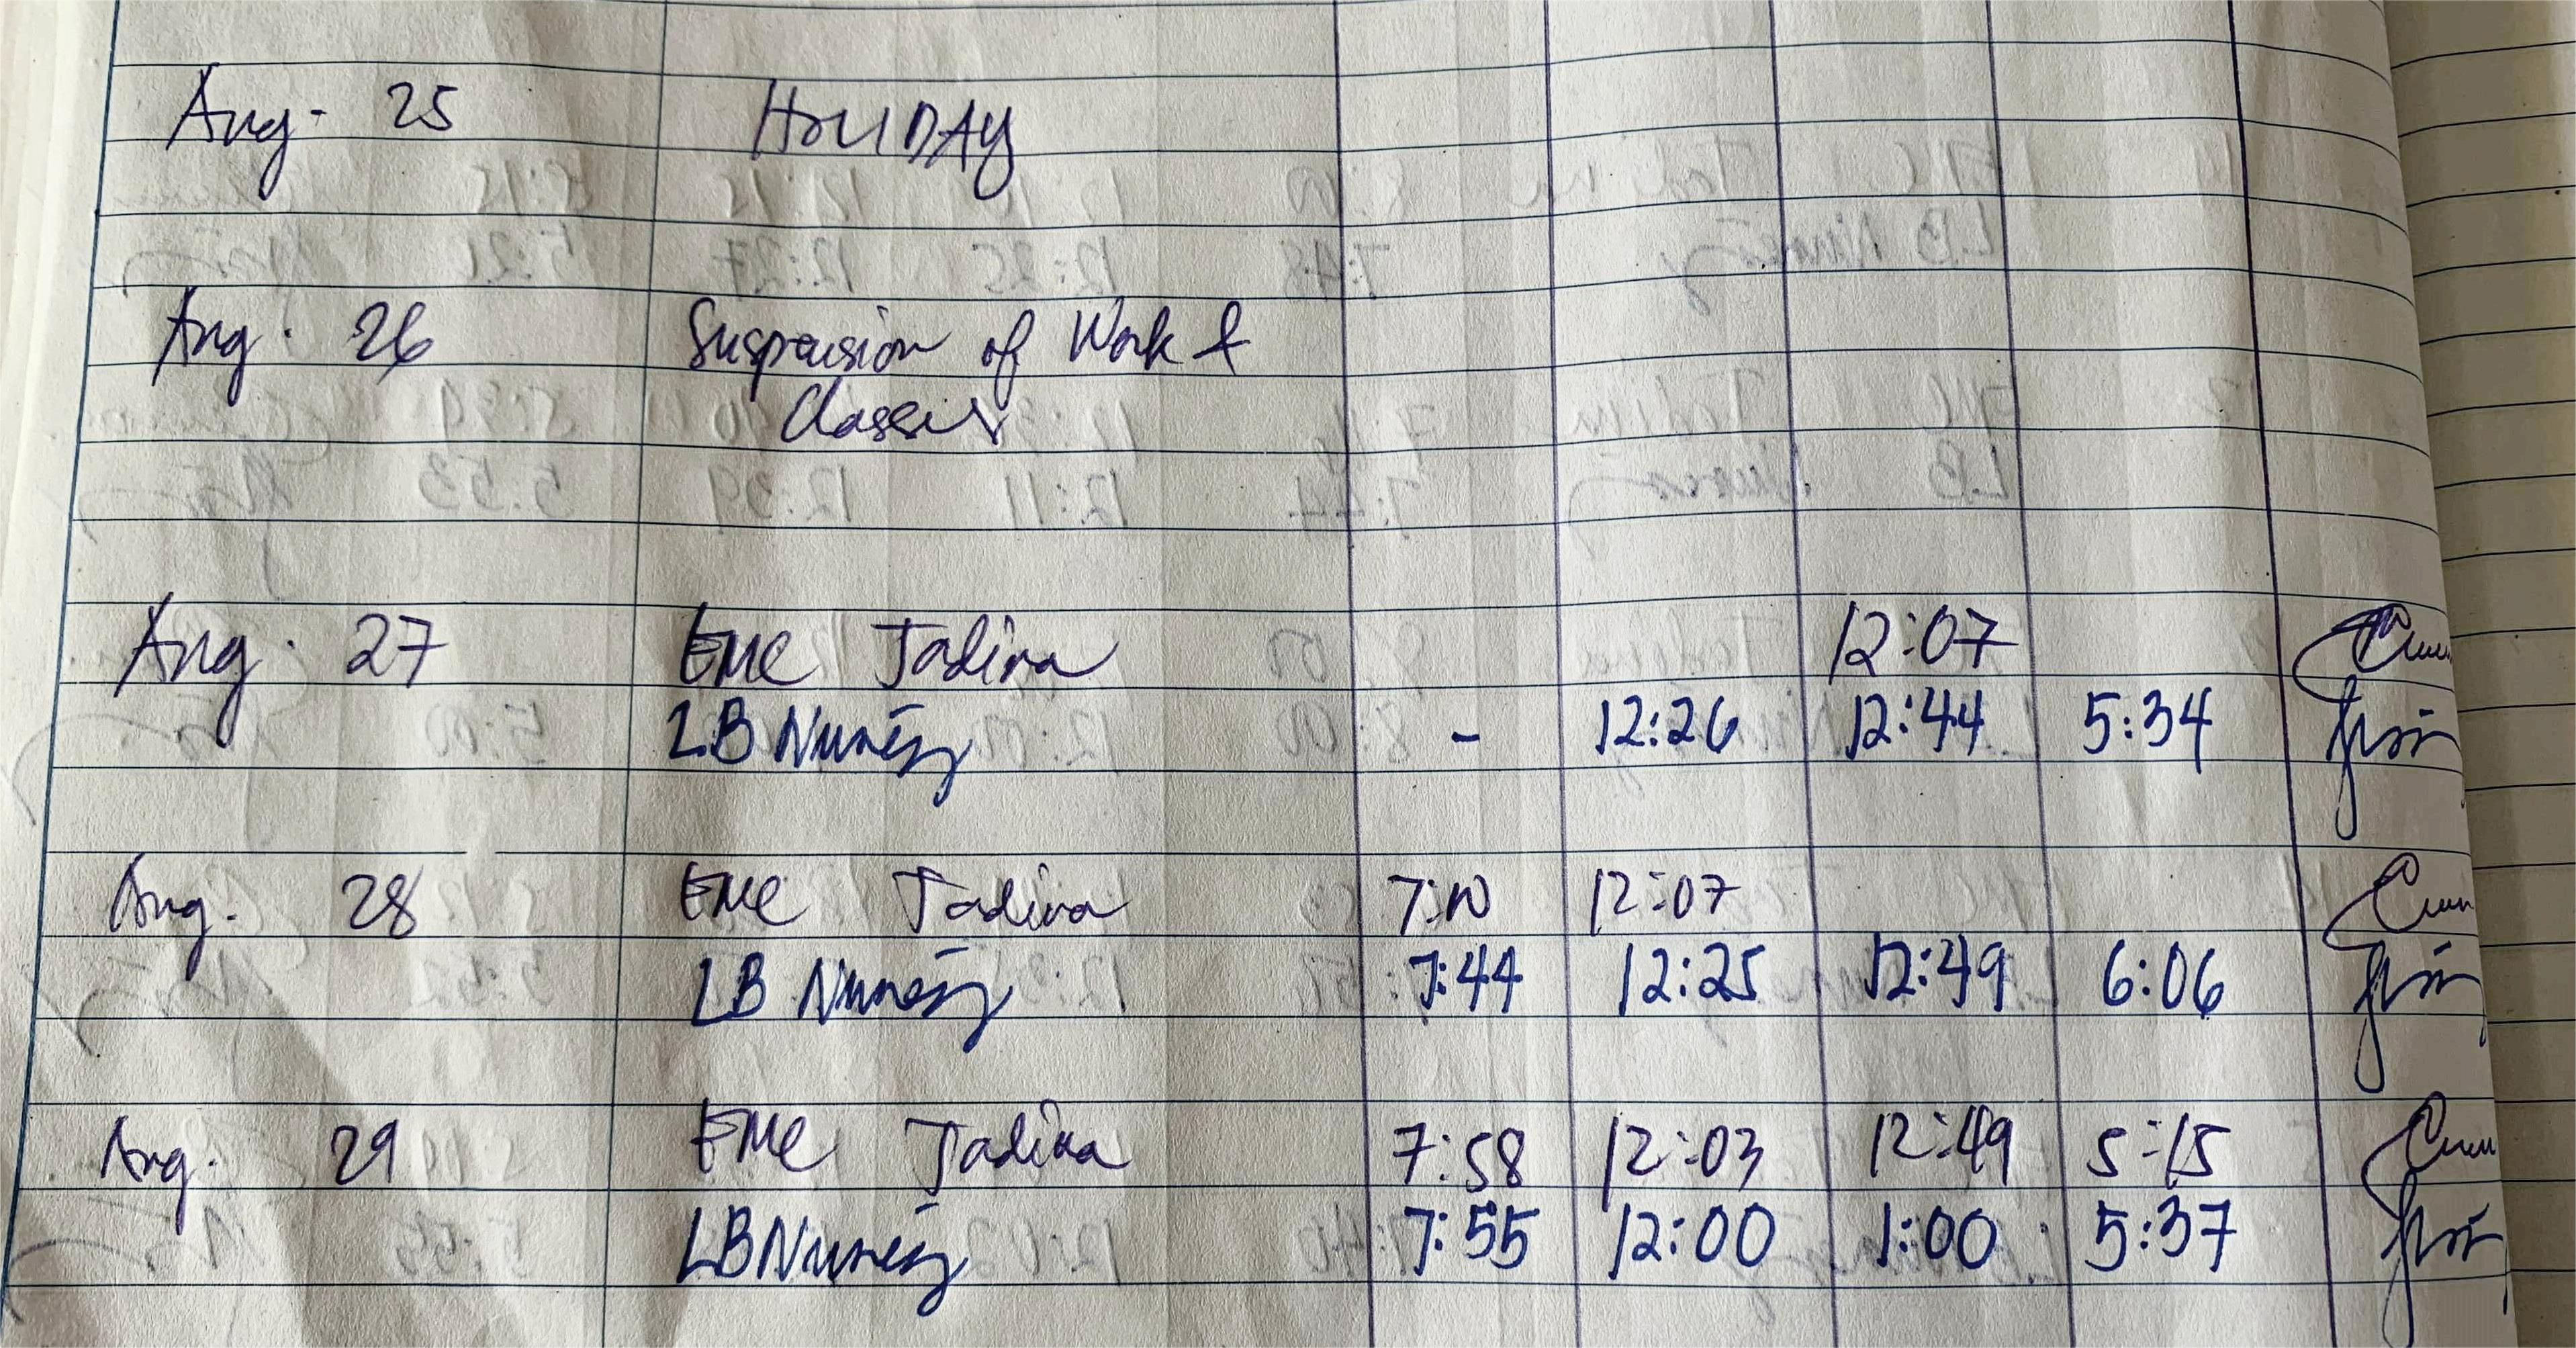 Aug. 25 HOLIDAY
Aug. 26 Suspension of Work &
Classes
Aug. 27 EMC Tadina 12:07
LB Nuñez - 12:26 12:44 5:34
Aug. 28 EMC Tadina 7:10 12:07
LB Nuñez 7:44 12:25 12:49 6:06
Aug. 29 EMC Tadina 7:58 12:03 12:49 5:15
LB Nuñez 7:55 12:00 1:00 5:37